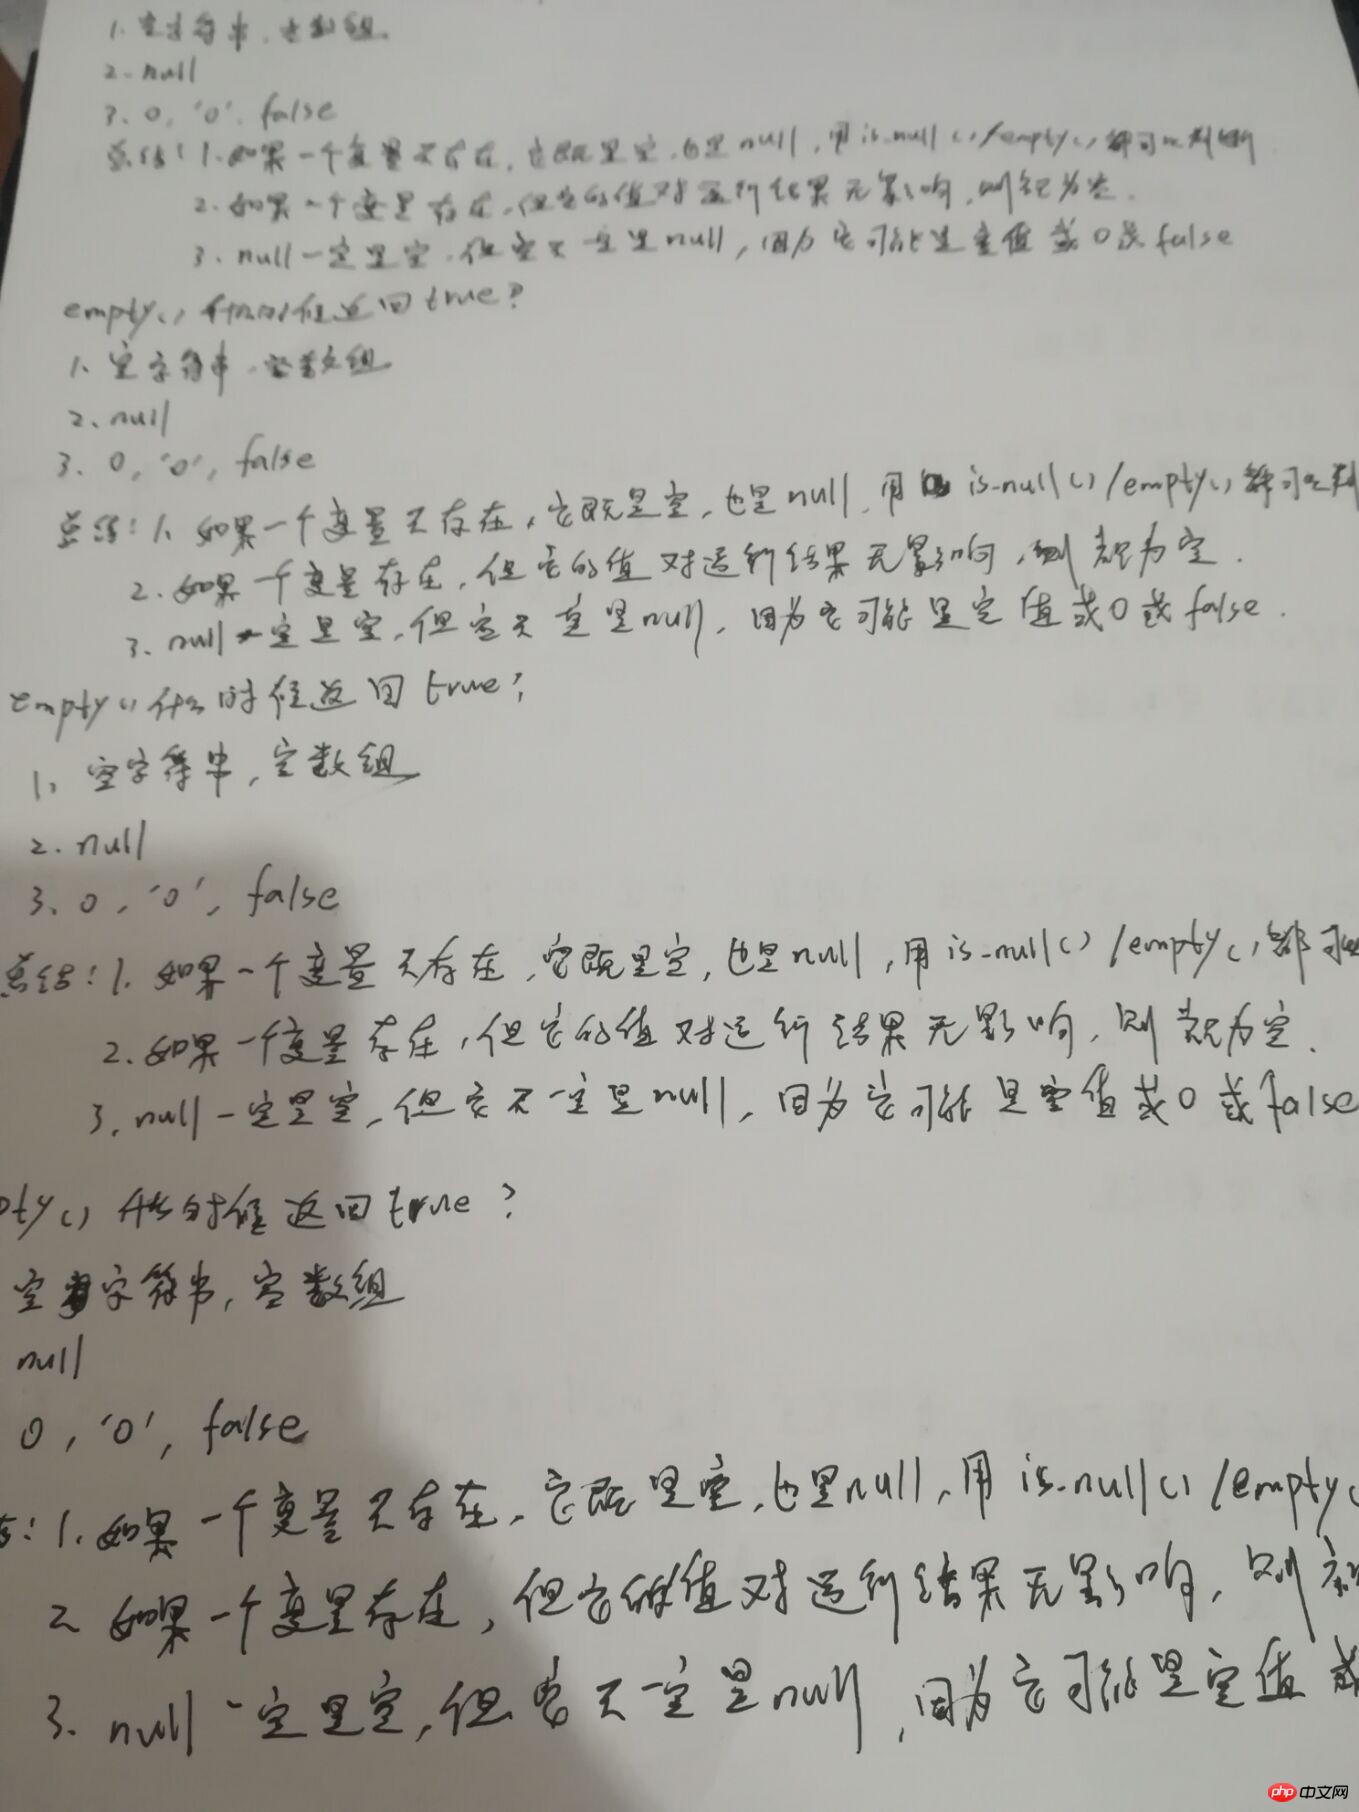 1. 空字符串，空数组
2. null
3. 0, '0', false
总结: 1. 如果一个变量不存在，它既是空，也是null，用is_null()/empty()都可以判断
2. 如果一个变量存在，但它的值对运行结果无影响，则视为空.
3. null一定是空，但空不一定是null，因为它可能是空值或0或false
empty()什么时候返回true?
1. 空字符串，空数组
2. null
3. 0, '0', false
总结: 1. 如果一个变量不存在，它既是空，也是null，用 is_null()/empty()都可以判
2. 如果一个变量存在，但它的值对运行结果无影响，则视为空.
3. null一定是空，但空不一定是null，因为它可能是空值或0或false.
empty()什么时候返回true?
1. 空字符串，空数组
2. null
3. 0, '0', false
总结: 1. 如果一个变量不存在，它既是空，也是null，用is_null()/empty()都可以
2. 如果一个变量存在，但它的值对运行结果无影响，则视为空.
3. null一定是空，但它不一定是null，因为它可能是空值或0或false
pty()什么时候返回true?
空字符串，空数组
null
0, '0', false
结: 1. 如果一个变量不存在，它既是空，也是null，用 is_null()/empty(
2. 如果一个变量存在，但它的值对运行结果无影响，则视
3. null一定是空，但空不一定是null，因为它可能是空值或
php 中文网